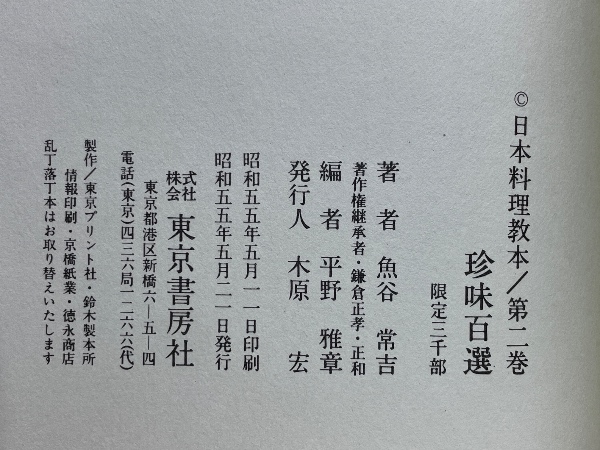 ©日本料理教本/第二巻
珍味百選
限定三千部
著者 魚谷常吉
著作権継承者・鎌倉正孝・正和
編者 平野雅章
発行人 木原宏
昭和五五年五月一一日印刷
昭和五五年五月二一日発行
株式会社 東京書房社
東京都港区新橋六―五―四
電話(東京)四三六局一二六六(代)
製作/東京プリント社・鈴木製本所
情報印刷・京橋紙業・徳永商店
乱丁落丁本はお取り替えいたします